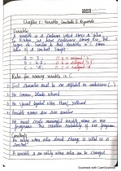 Chapter 1: Variables, Constants & Keywords
Variables
A variable is a container which stores a value.
In kitchen, we have containers storing rice, dal,
sugar etc. Similar to that variables in C stores
value of a constant. Example:
a = 3;
b = 4.7;
c = 'A';
Rules for naming variables in C
First character must be an alphabet or underscore (_)
No commas, blanks allowed
No special symbol other than _ allowed
Variable names are case sensitive
We must create meaningful variable names in our
programs. This enhances readability of our programs
Constants
An entity whose value doesn't change is called as a
constant.
A variable is an entity whose value can be changed.
Scanned with CamScanner